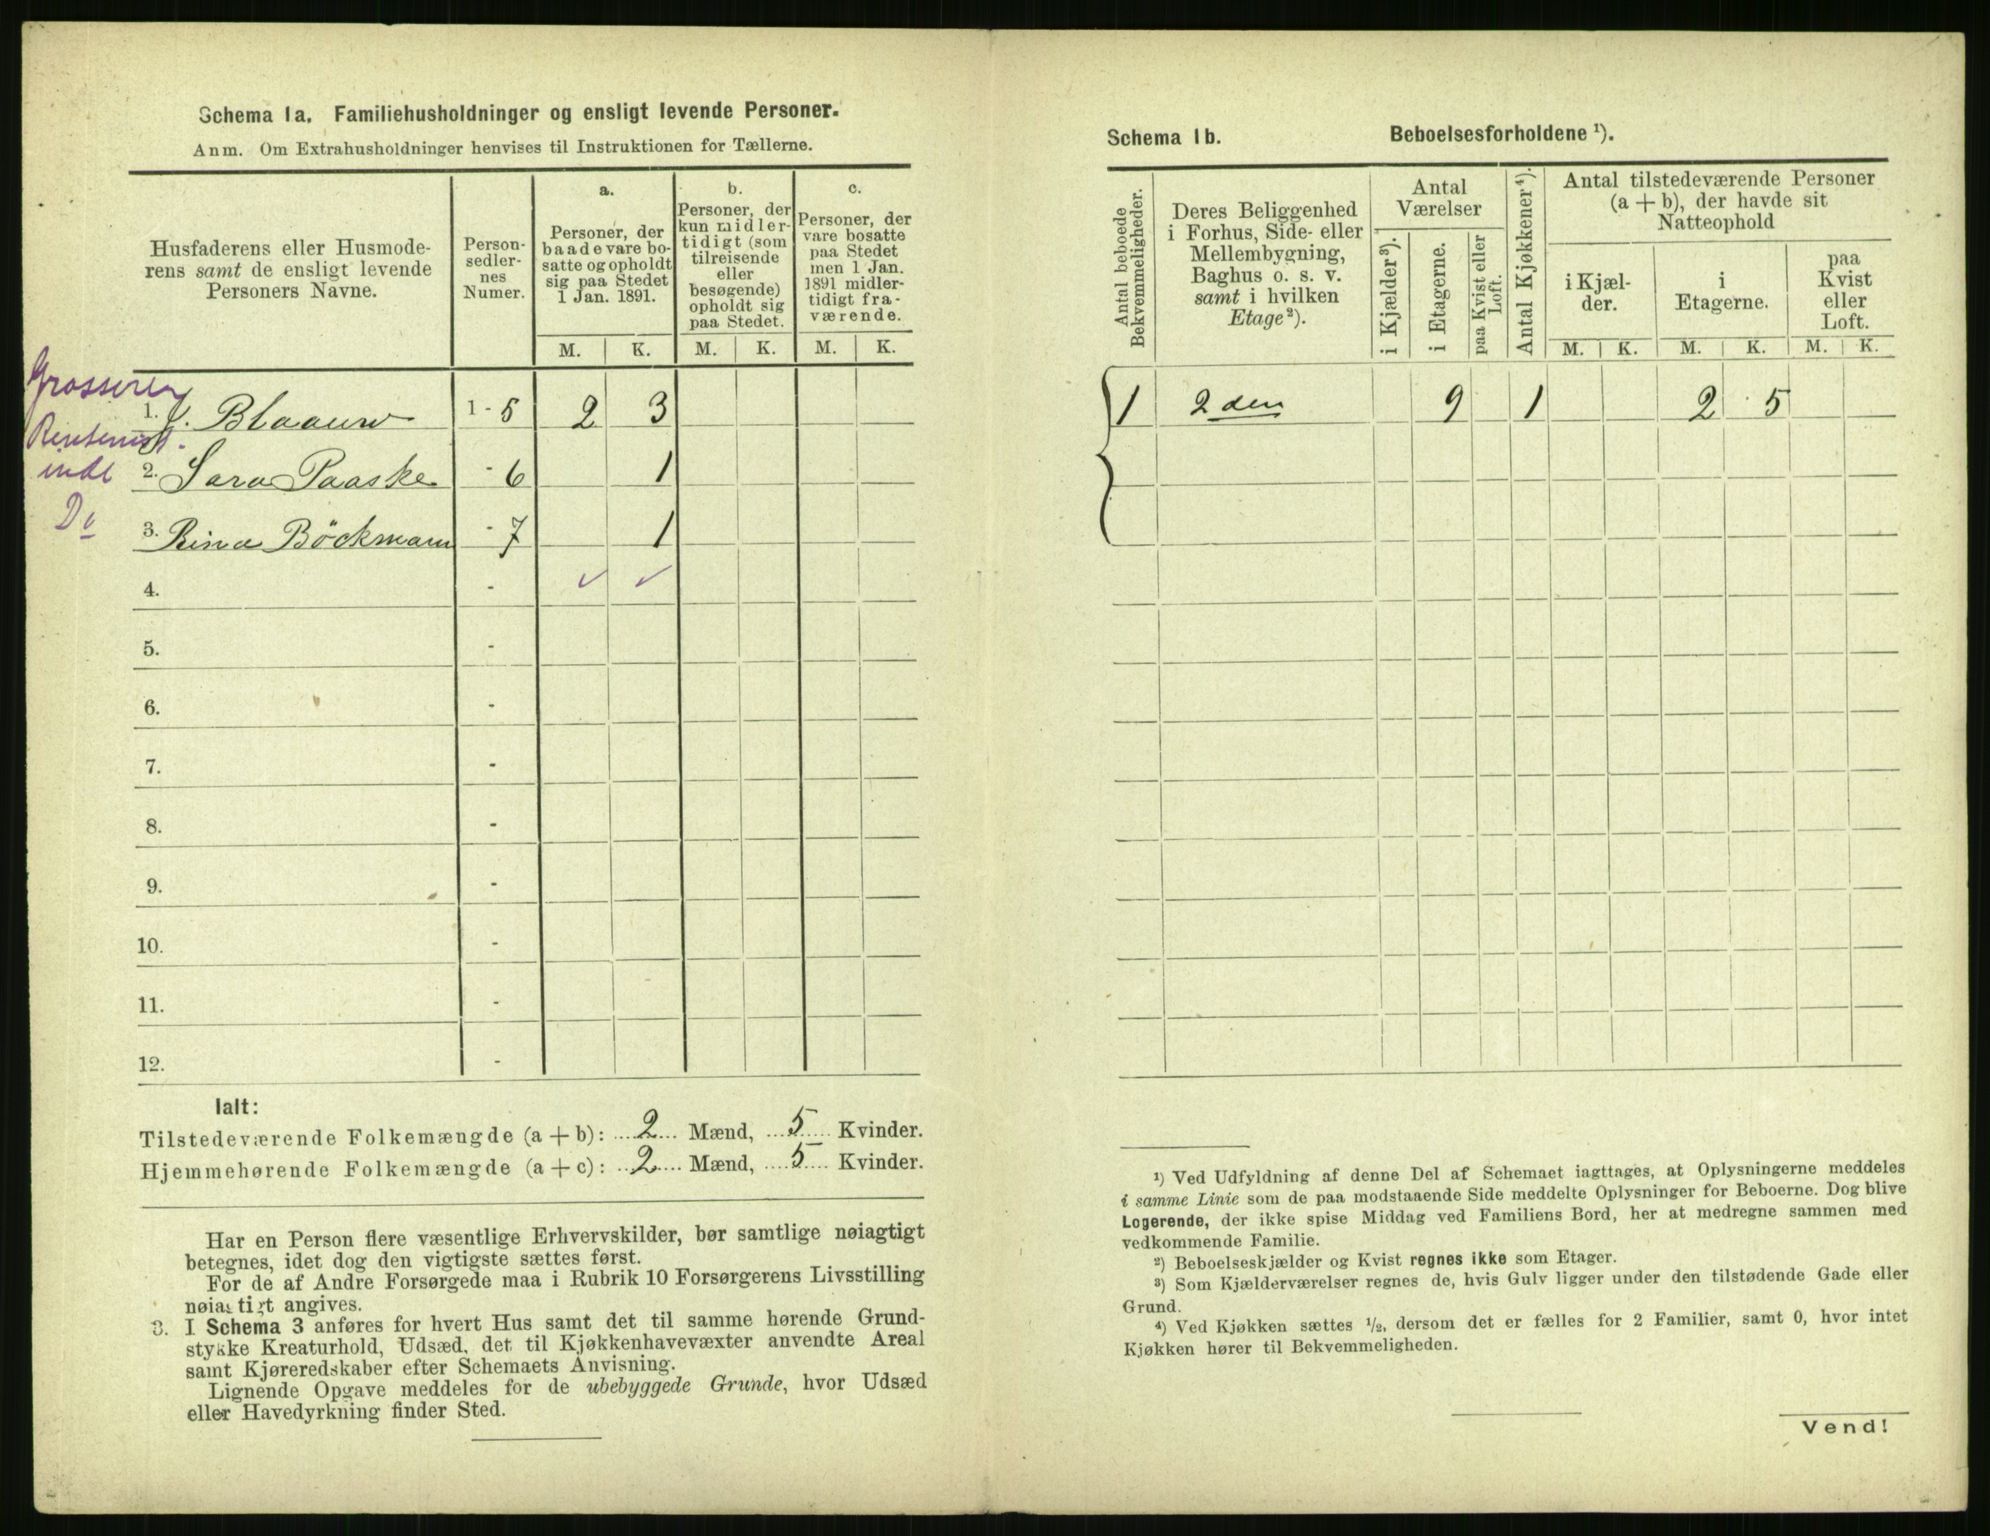 Schema 1a. Familiehusholdninger og ensligt levende Personer.
Anm. Om Extrahusholdninger henvises til Instruktionen for Tællerne.
Husfaderens eller Husmode-
rens samt de ensligt levende
Personers Navne.
Person-
sedler-
nes
Numer.
a.
Personer, der
baade vare bo-
satte og opholdt
sig paa Stedet
1 Jan. 1891.
M. K.
b.
Personer, der
kun midler-
tidigt (som
tilreisende
eller
besøgende)
opholdt sig
paa Stedet.
M. K.
c.
Personer, der
vare bosatte
paa Stedet
men 1 Jan.
1891 midler-
tidigt fra-
værende.
M. K.
Grosserer
1. J. Blaauw 1 - 5 2 3
Rentenist-
inde
2. Sara Paaske - 6 1
Do
3. Rina Böckmann - 7 1
4. - ✓ ✓
5. -
6. -
7. -
8. -
9. -
10. -
11. -
12. -
Ialt:
Tilstedeværende Folkemængde (a + b): 2 Mænd, 5 Kvinder.
Hjemmehørende Folkemængde (a + c): 2 Mænd, 5 Kvinder.
Har en Person flere væsentlige Erhvervskilder, bør samtlige nøiagtigt
betegnes, idet dog den vigtigste sættes først.
For de af Andre Forsørgede maa i Rubrik 10 Forsørgerens Livsstilling
nøiagtigt angives.
3. I Schema 3 anføres for hvert Hus samt det til samme hørende Grund-
stykke Kreaturhold, Udsæd, det til Kjøkkenhavevæxter anvendte Areal
samt Kjøreredskaber efter Schemaets Anvisning.
Lignende Opgave meddeles for de ubebyggede Grunde, hvor Udsæd
eller Havedyrkning finder Sted.
Schema 1b. Beboelsesforholdene ¹).
Antal beboede
Bekvemmeligheder.
Deres Beliggenhed
i Forhus, Side- eller
Mellembygning,
Baghus o. s. v.
samt i hvilken
Etage²).
Antal
Værelser
i Kjælder³).
i Etagerne.
paa Kvist eller
Loft.
Antal Kjøkkener⁴).
Antal tilstedeværende Personer
(a + b), der havde sit
Natteophold
i Kjæl-
der.
M. K.
i
Etagerne.
M. K.
paa
Kvist
eller
Loft.
M. K.
1 2den 9 1 2 5
¹) Ved Udfyldning af denne Del af Schemaet iagttages, at Oplysningerne meddeles
i samme Linie som de paa modstaaende Side meddelte Oplysninger for Beboerne. Dog blive
Logerende, der ikke spise Middag ved Familiens Bord, her at medregne sammen med
vedkommende Familie.
²) Beboelseskjælder og Kvist regnes ikke som Etager.
³) Som Kjælderværelser regnes de, hvis Gulv ligger under den tilstødende Gade eller
Grund.
⁴) Ved Kjøkken sættes ½, dersom det er fælles for 2 Familier, samt 0, hvor intet
Kjøkken hører til Bekvemmeligheden.
Vend!